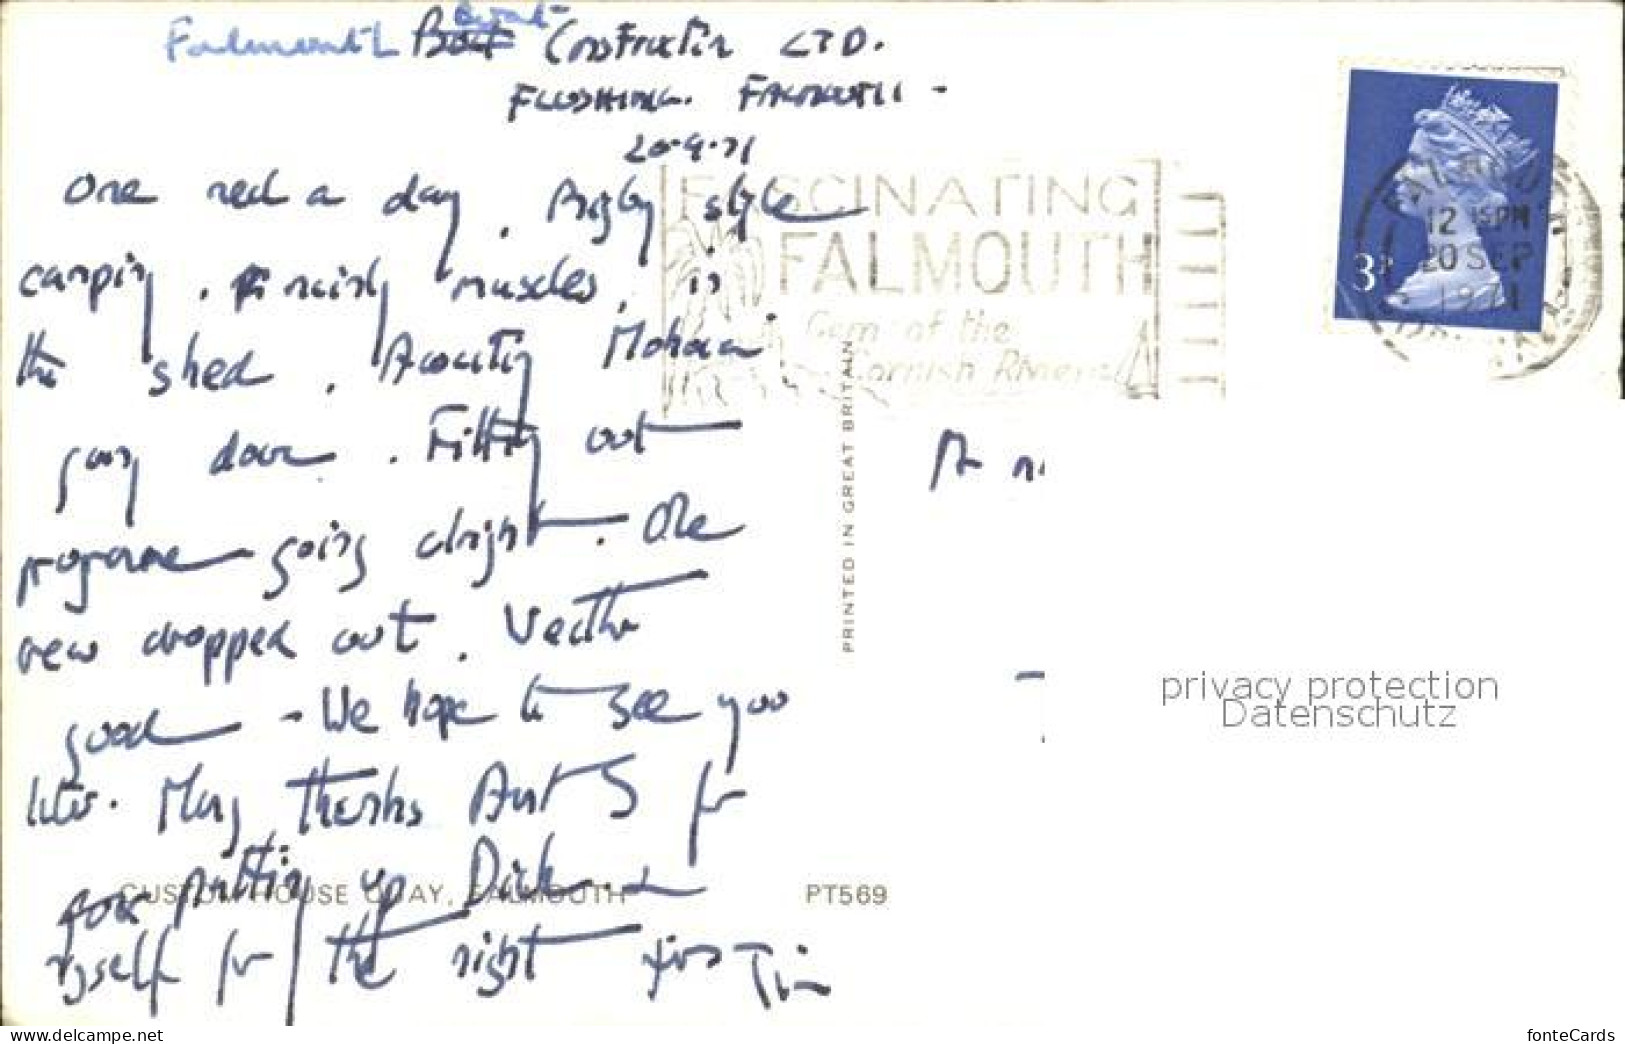 Falmouth Boat Construction LTD.
FLUSHING. FALMOUTH -
20.9.71
One red a day. Rugby style
camping. Finishing muscles, in
the shed. Awaiting
going down. Fitting out
programme going alright. One
new dropped out. Weather
good - We hope to see you
later. Many thanks Aunt S for
for putting up Dick &
myself for the night yrs Tim
CUSTOM HOUSE QUAY, FALMOUTH
PT569
PRINTED IN GREAT BRITAIN
FASCINATING
FALMOUTH
Gem of the
Cornish Riviera
3P
FALMOUTH
12 15PM
20 SEP
1971
CORNWALL
privacy protection
Datenschutz
https://www.delcampe.net
fonteCards